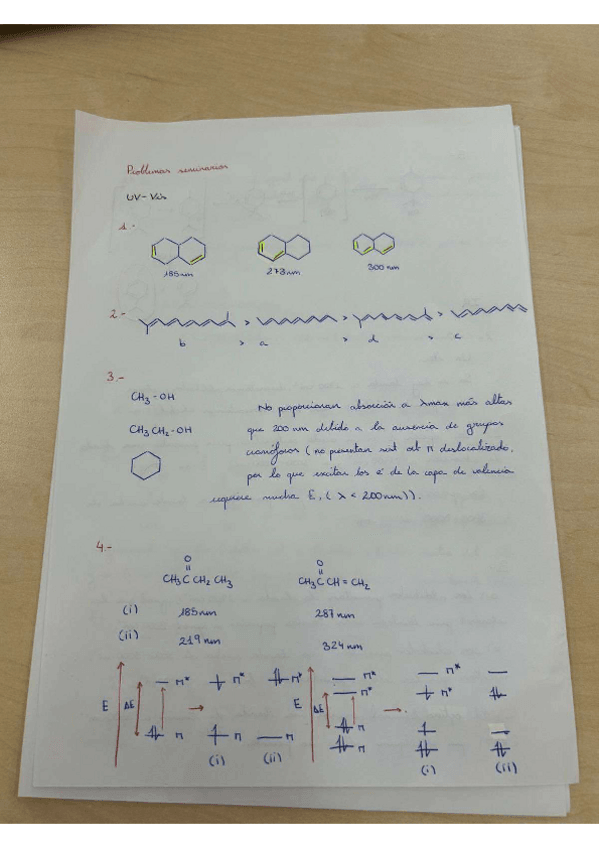 Problemas seminarios
UV-Vis
1.-
185nm 273nm 300nm
2.-
> > >
b > a > d > c
3.-
CH3-OH
CH3CH2-OH
No proporcionan absorción a λmax más altas
que 200 nm debido a la ausencia de grupos
cromóforos (no presentan sist at π deslocalizado,
por lo que excitar los e⁻ de la capa de valencia
requiere mucha E, (λ < 200nm)).
4.-
O O
CH3CCH2CH3 CH3CCH=CH2
(i) 185nm 287nm
(ii) 219nm 324nm
E ΔE π* π* π* E ΔE π* π* π* π*
π π π π π
(i) (ii) (i) (ii)